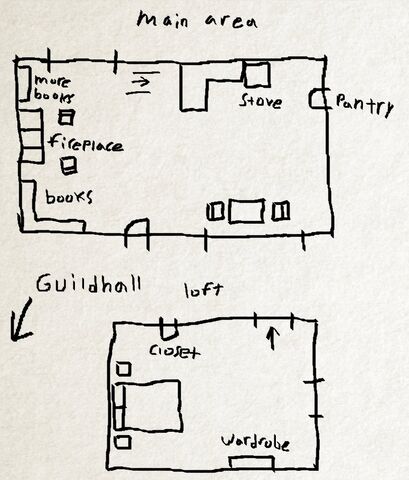 main area
more
books
stove
Pantry
fireplace
books
Guildhall
loft
closet
wardrobe